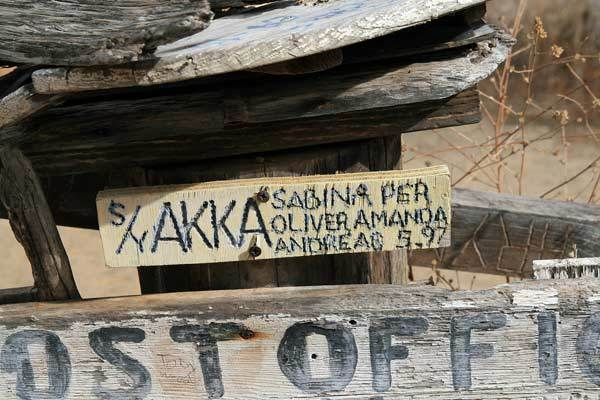 S/Y AKKA SABINA PER
OLIVER AMANDA
ANDREAS 5.97
OST OFFIC